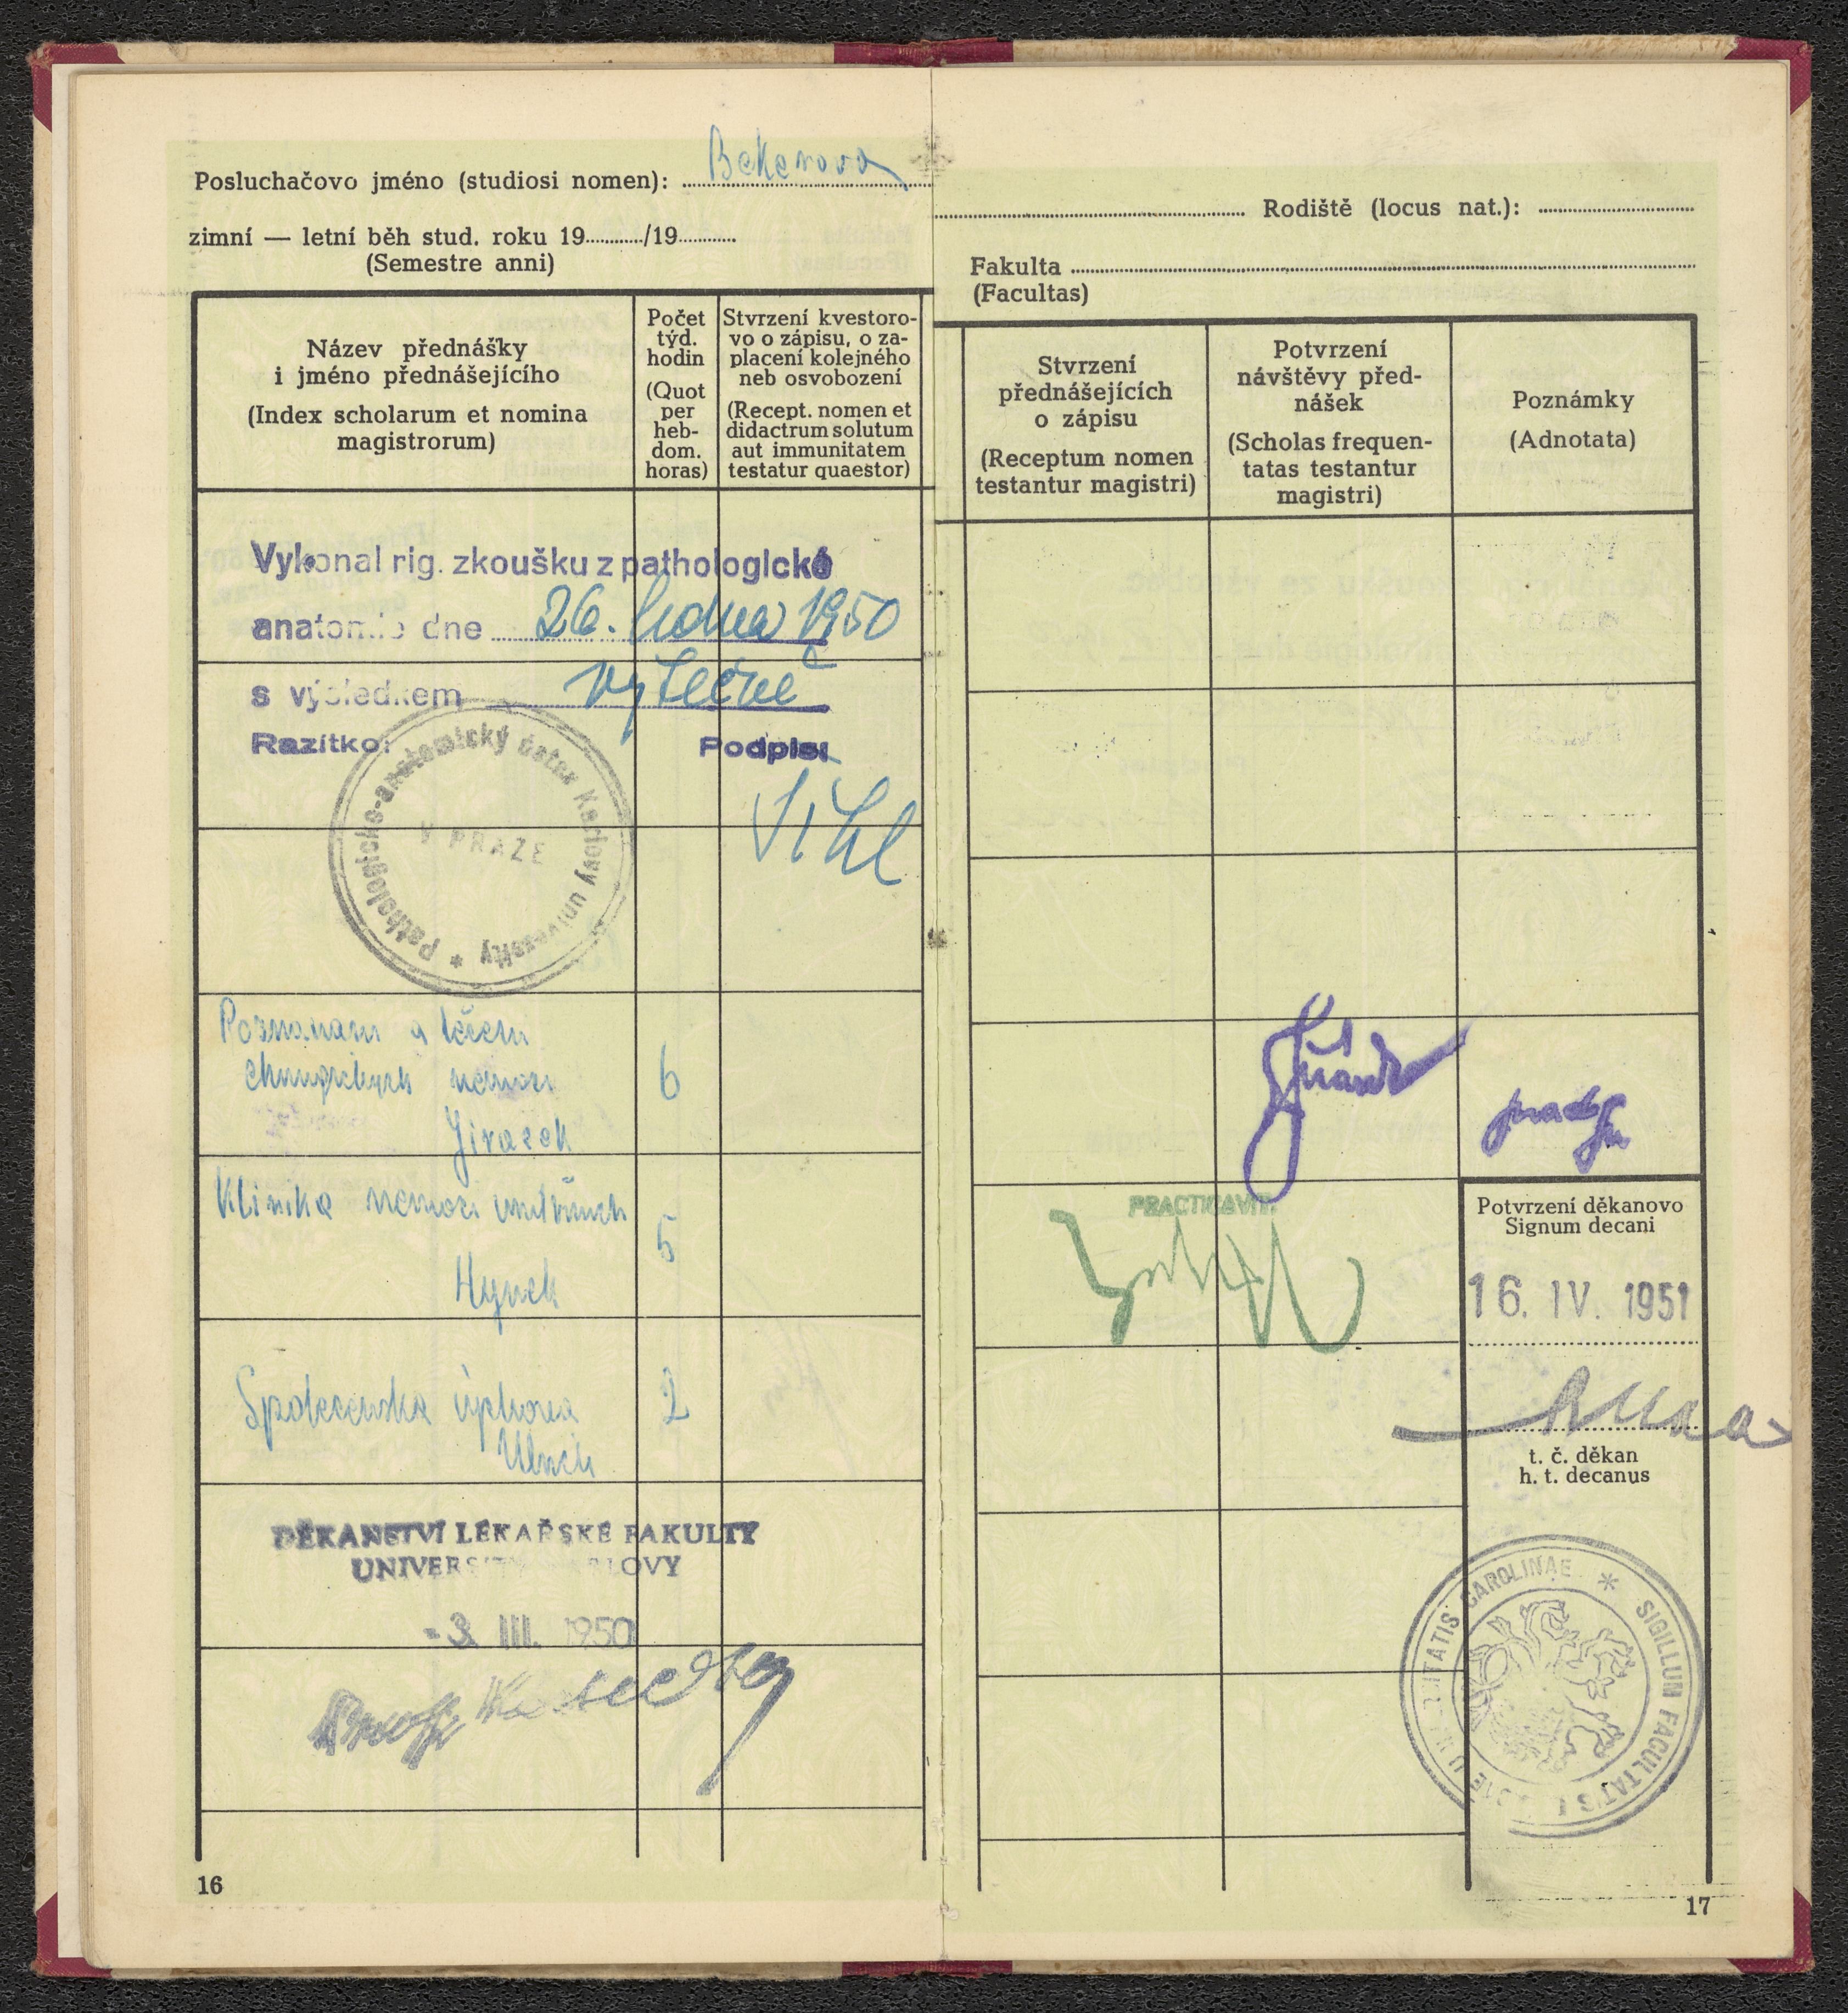 Posluchačovo jméno (studiosi nomen): Bekerova
zimní — letní běh stud. roku 19........../19..........
(Semestre anni)
Název přednášky
i jméno přednášejícího
(Index scholarum et nomina
magistrorum)
Počet
týd.
hodin
(Quot
per
heb-
dom.
horas)
Stvrzení kvestoro-
vo o zápisu, o za-
placení kolejného
neb osvobození
(Recept. nomen et
didactrum solutum
aut immunitatem
testatur quaestor)
Vykonal rig. zkoušku z pathologické
anatomie dne 26. ledna 1950
s výsledkem výtečně
Razítko: Podpis:
Pathologicko-anatomický ústav Karlovy university *
V PRAZE
Sikl
Poznavani a léčení
chirurgických nemocí 6
Jirasek
Klinika nemocí vnitřních
5
Hynek
Společenska úchova 2
Ulrich
DĚKANSTVÍ LÉKAŘSKÉ FAKULTY
UNIVERSITY KARLOVY
- 3. III. 1950
16
Rodiště (locus nat.):
Fakulta
(Facultas)
Stvrzení
přednášejících
o zápisu
(Receptum nomen
testantur magistri)
Potvrzení
návštěvy před-
nášek
(Scholas frequen-
tatas testantur
magistri)
Poznámky
(Adnotata)
PRACTICAVIT
Potvrzení děkanovo
Signum decani
16. IV. 1951
t. č. děkan
h. t. decanus
* SIGILLUM FACULTATIS UNIVERSITATIS CAROLINAE
17